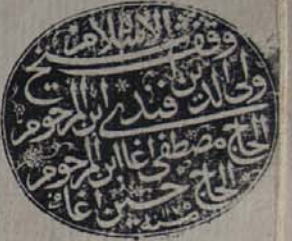 وقف شيخ الاسلام
ولي الدين افندي ابن المرحوم
الحاج مصطفى اغا ابن المرحوم
الحاج حسين اغا
سنة